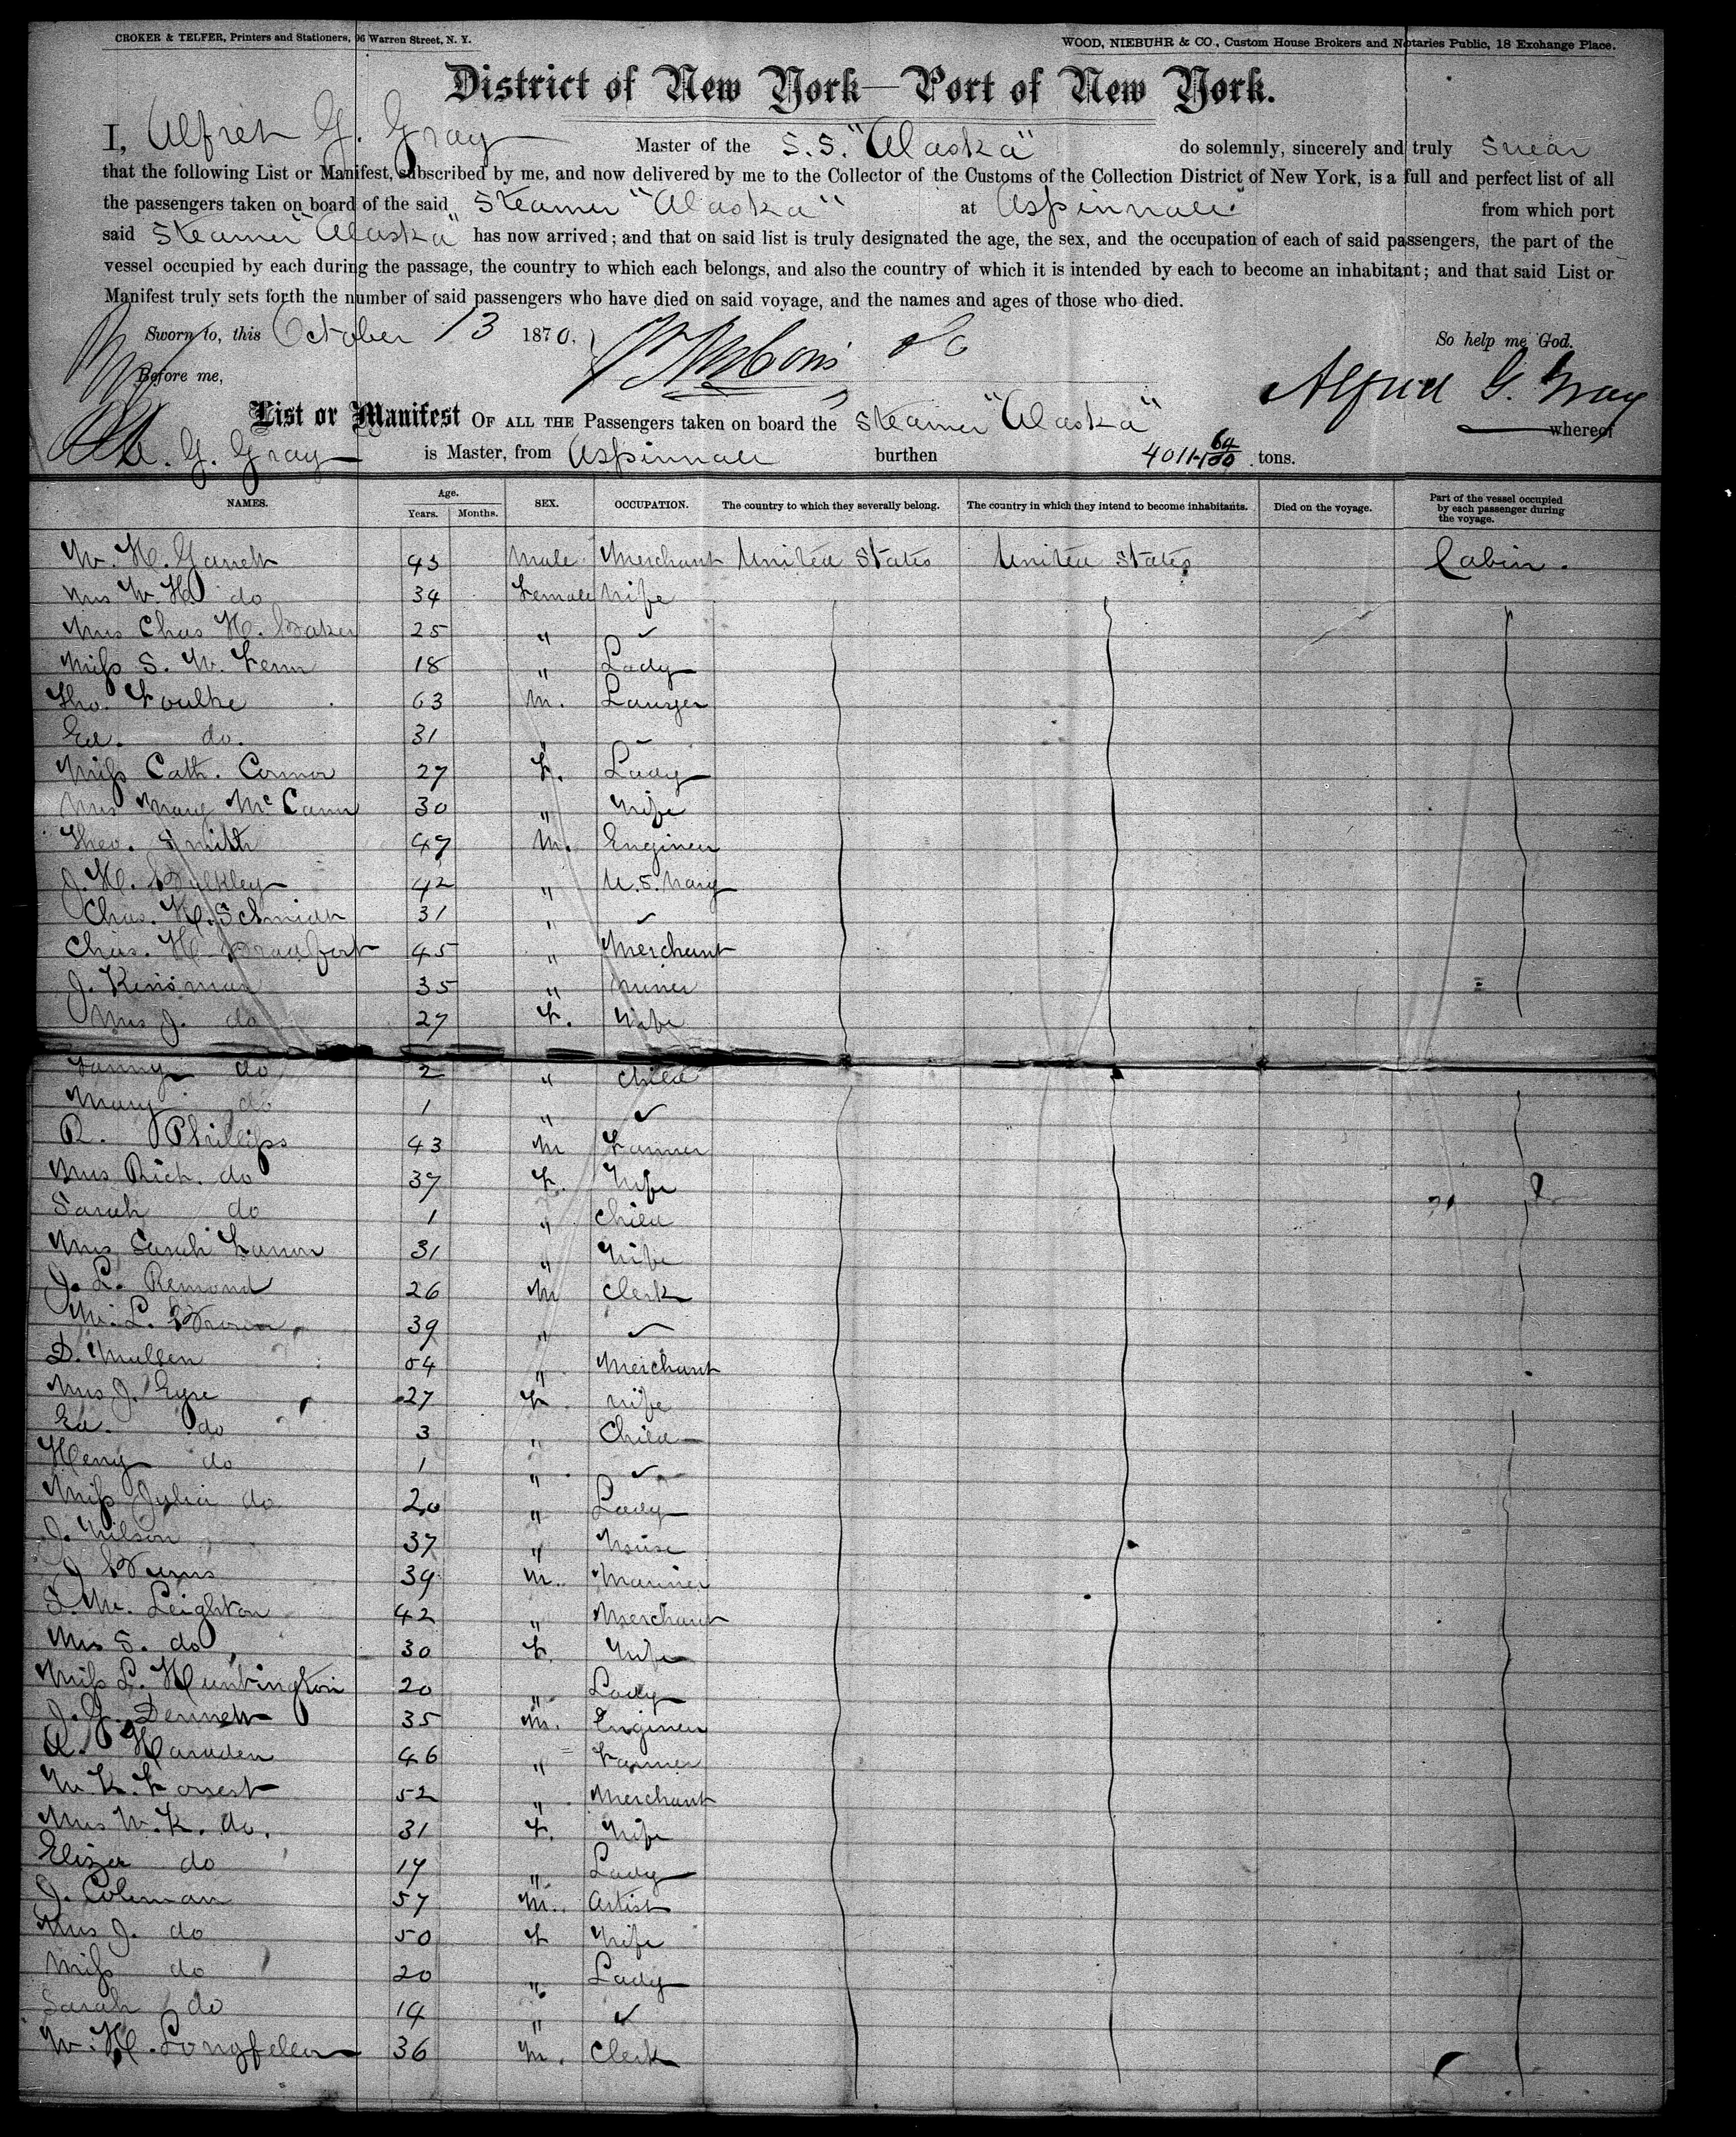 CROKER & TELFER, Printers and Stationers, 96 Warren Street, N. Y. WOOD, NIEBUHR & CO., Custom House Brokers and Notaries Public, 18 Exchange Place.
District of New York—Port of New York.
I, Alfred G. Gray Master of the S.S. "Alaska" do solemnly, sincerely and truly swear
that the following List or Manifest, subscribed by me, and now delivered by me to the Collector of the Customs of the Collection District of New York, is a full and perfect list of all
the passengers taken on board of the said Steamer "Alaska" at Aspinwall from which port
said Steamer "Alaska" has now arrived; and that on said list is truly designated the age, the sex, and the occupation of each of said passengers, the part of the
vessel occupied by each during the passage, the country to which each belongs, and also the country of which it is intended by each to become an inhabitant; and that said List or
Manifest truly sets forth the number of said passengers who have died on said voyage, and the names and ages of those who died.
Sworn to, this October 13 1870. So help me God.
Before me, Alfred G. Gray
List or Manifest OF ALL THE Passengers taken on board the Steamer "Alaska" whereof
A. G. Gray is Master, from Aspinwall burthen 4011 64/100 tons.
NAMES. Age. Years. Months. SEX. OCCUPATION. The country to which they severally belong. The country in which they intend to become inhabitants. Died on the voyage. Part of the vessel occupied by each passenger during the voyage.
W. H. Garrett 43 Male Merchant United States United States Cabin.
Mrs W. H. do 34 Female Wife
Mrs Chas H. Baker 25 " ✓
Miss S. W. Fenn 18 " Lady
Tho. Foulke 63 M. Lawyer
Ed. do. 31 "
Miss Cath. Connor 27 F. Lady
Mrs Mary McCann 30 " Wife
Theo. Smith 47 M. Engineer
J. H. Bulkley 42 " U.S. Navy
Chas. H. Schmidt 31 " ✓
Chas. H. Bradford 45 " Merchant
J. Kinsman 35 " Miner
Mrs J. do 27 F. Wife
Fanny do 2 " Child
Mary do 1 " ✓
R. Phillips 43 M Farmer
Mrs Rich. do 37 F. Wife
Sarah do 1 " Child
Mrs Sarah 31 " Wife
J. L. Remond 26 M Clerk
M. L. Brown 39 " ✓
D. Mullen 54 " Merchant
Mrs J. Eyre 27 F. Wife
Ed. do 3 " Child
Henry do 1 " ✓
Miss Julia do 20 " Lady
J. Wilson 37 " Nurse
J. Burns 39 M. Mariner
S. M. Leighton 42 " Merchant
Mrs S. do 30 F. Wife
Miss L. Huntington 20 " Lady
J. G. Dennett 35 M. Engineer
A. 46 " Farmer
W. K. Forrest 52 " Merchant
Mrs W. K. do. 31 F. Wife
Eliza do 17 " Lady
J. Coleman 57 M. Artist
Mrs J. do 50 F Wife
Miss do 20 " Lady
Sarah do 14 " ✓
W. H. Longfellow 36 M. Clerk